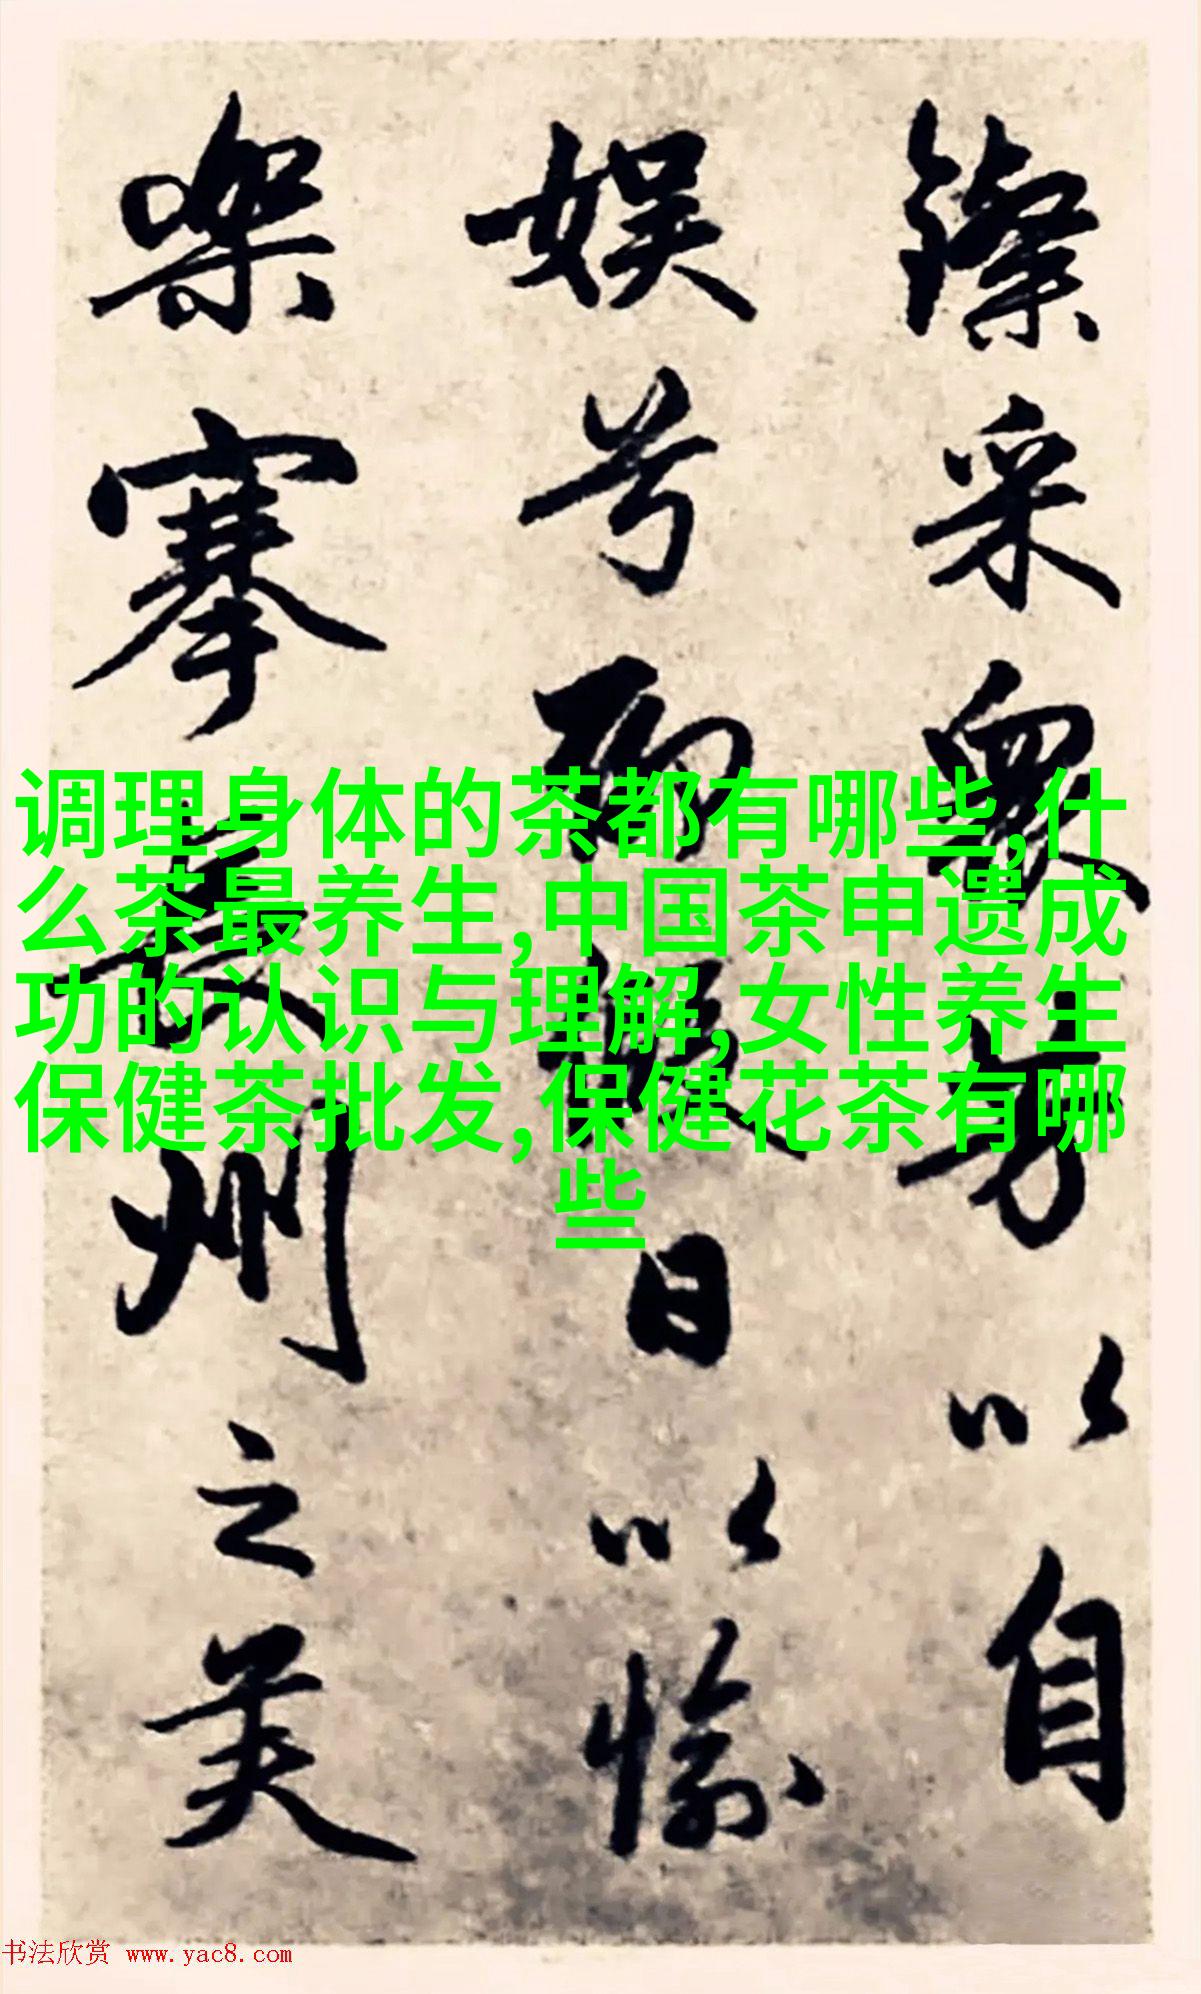 采衆芳以自
娱兮聊暇日以愉
樂搴長洲之美
调理身体的茶都有哪些,什
么茶最养生,中国茶申遗成
功的认识与理解,女性养生
保健茶批发,保健花茶有哪
些
书法欣赏 www.yac8.com